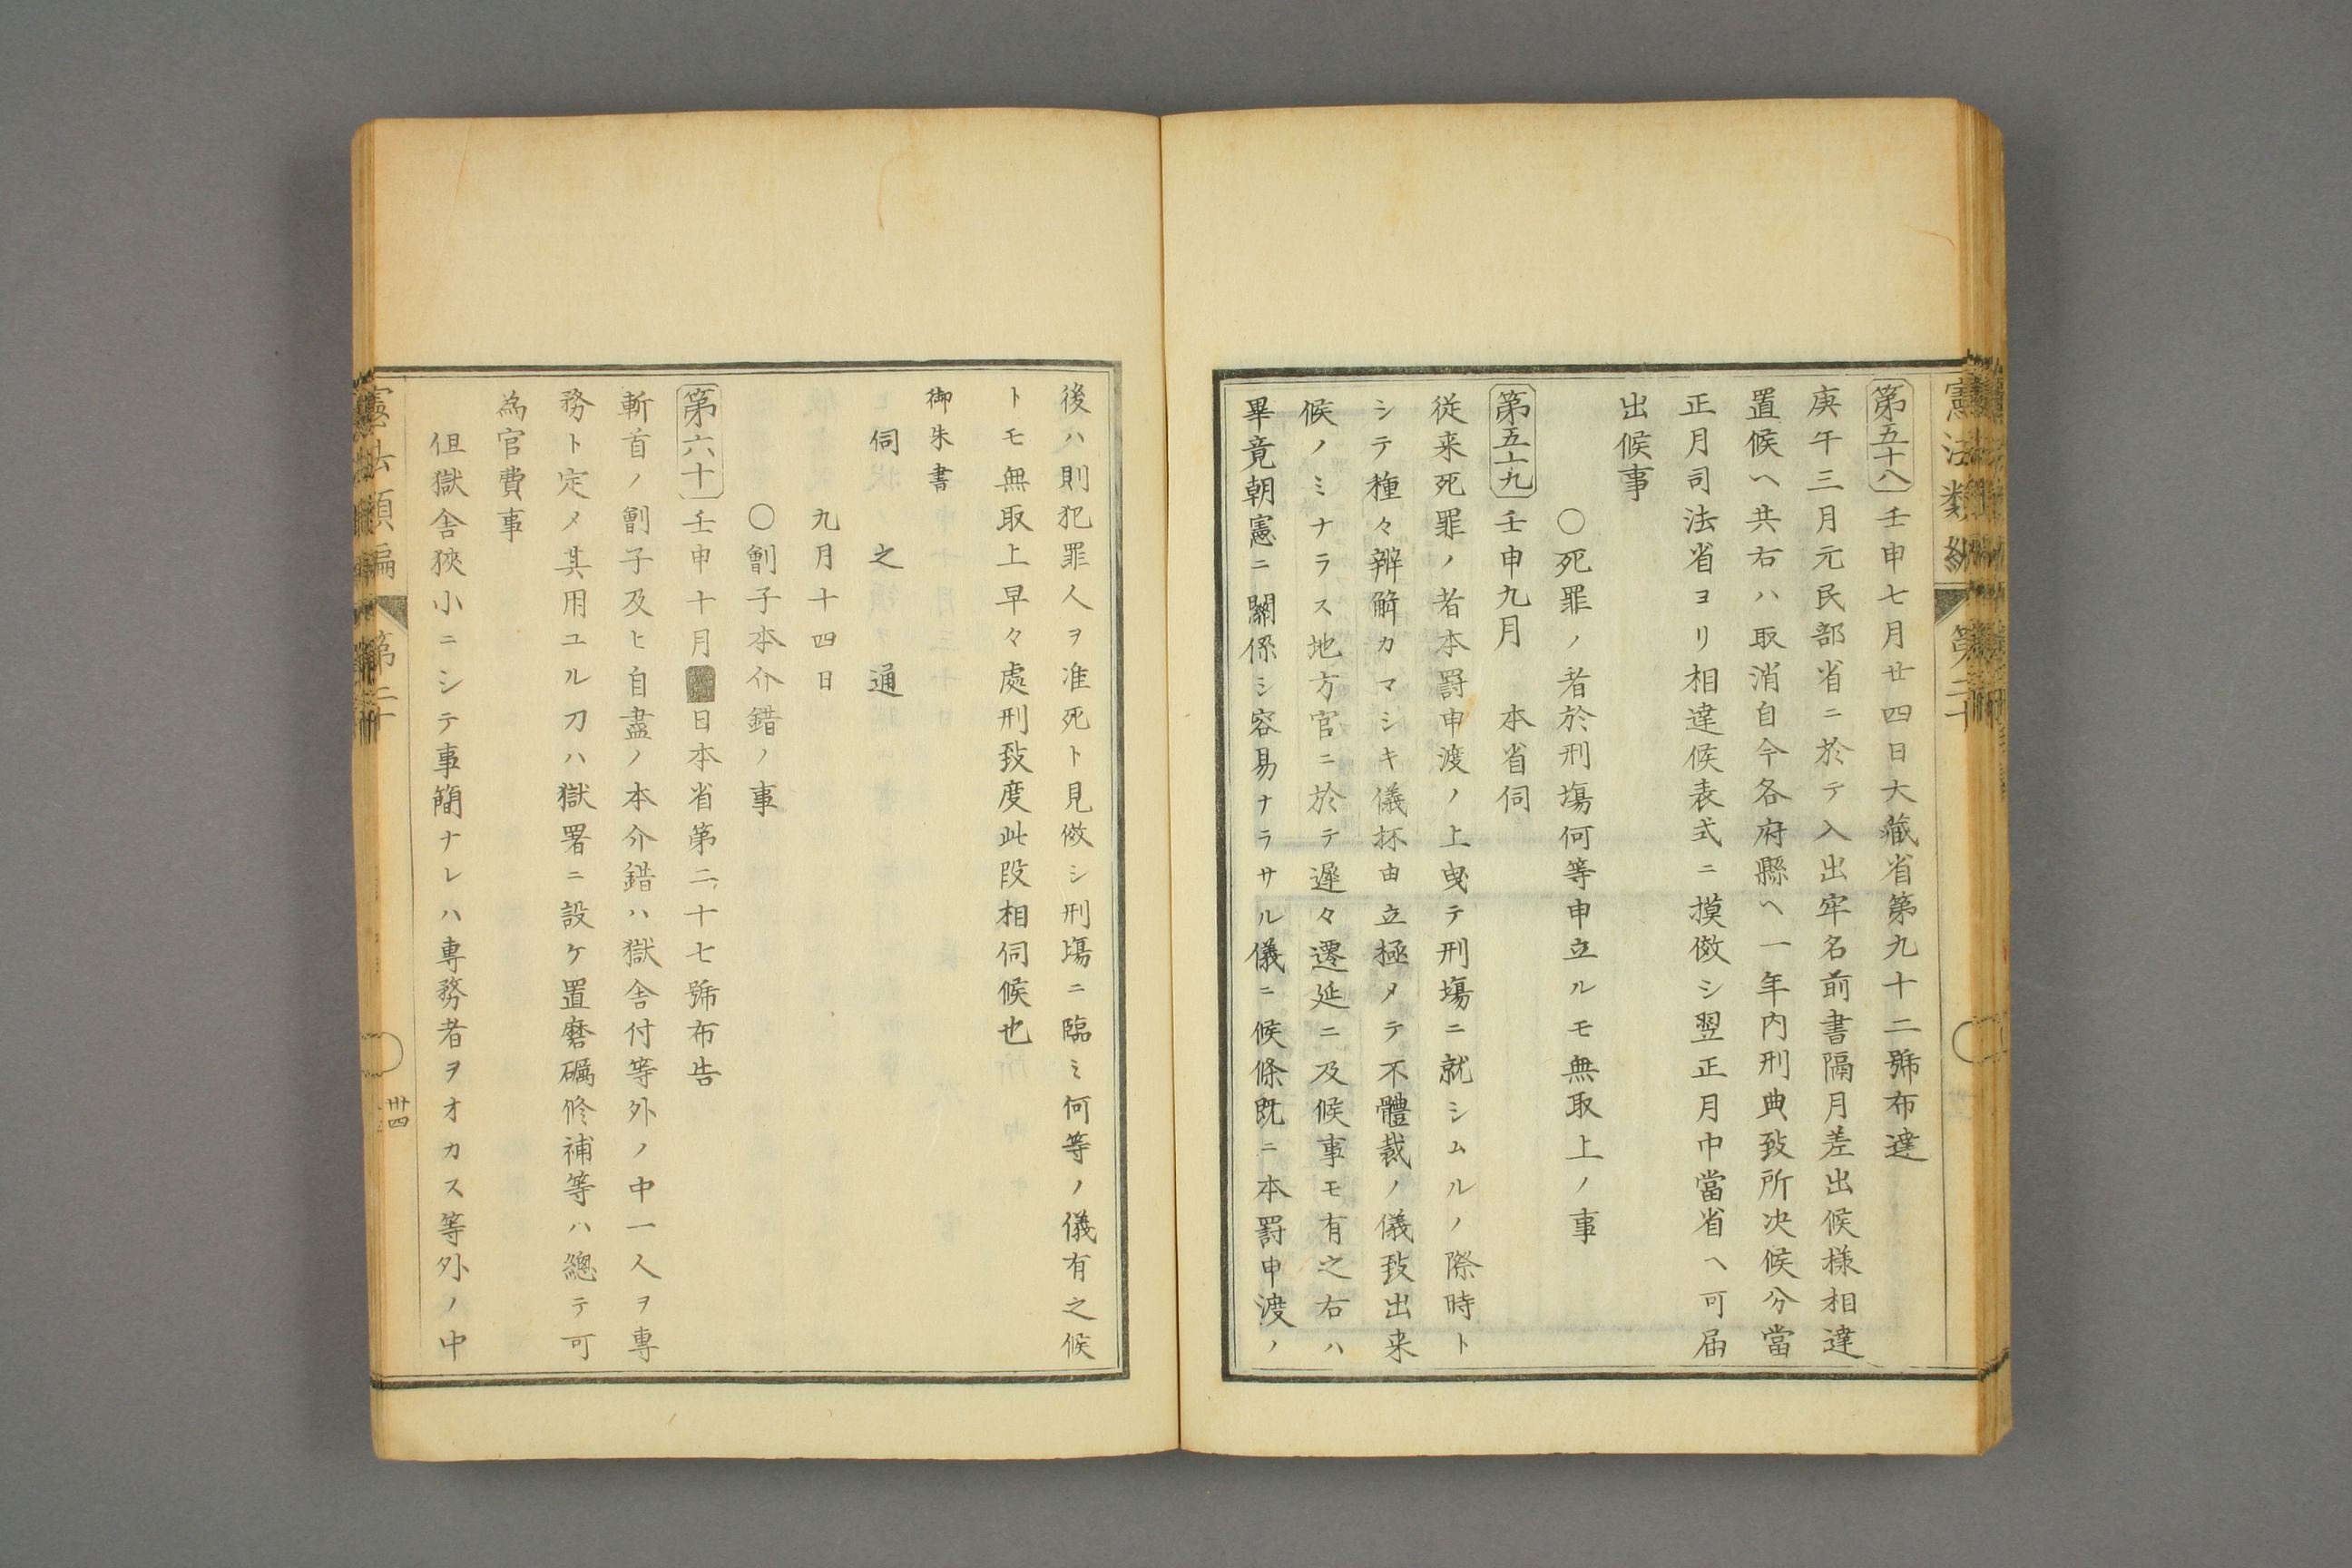 第五十八 壬申七月廿四日大藏省第九十二號布達
庚午三月元民部省ニ於テ入出牢名前書隔月差出候様相達
置候ヘ共右ハ取消自今各府縣ヘ一年内刑典致所决候分當
正月司法省ヨリ相達候表式ニ摸傚シ翌正月中當省ヘ可届
出候事
○死罪ノ者於刑塲何等申立ルモ無取上ノ事
第五十九 壬申九月 本省伺
従来死罪ノ者本罸申渡ノ上曵テ刑塲ニ就シムルノ際時ト
シテ種々辨解カマシキ儀抔由立極メテ不體裁ノ儀致出来
候ノミナラス地方官ニ於テ遲々遷延ニ及候事モ有之右ハ
畢竟朝憲ニ關係シ容易ナラサル儀ニ候條既ニ本罸申渡ノ
後ハ則犯罪人ヲ准死ト見傚シ刑塲ニ臨ミ何等ノ儀有之候
トモ無取上早々處刑致度此段相伺候也
御朱書
伺之通
九月十四日
○劊子本介錯ノ事
第六十 壬申十月 日本省第二十七號布告
斬首ノ劊子及ヒ自盡ノ本介錯ハ獄舎付等外ノ中一人ヲ專
務ト定メ其用ユル刀ハ獄署ニ設ケ置磨礪修補等ハ總テ可
為官費事
但獄舎狹小ニシテ事簡ナレハ専務者ヲオカス等外ノ中
第二十
卅四